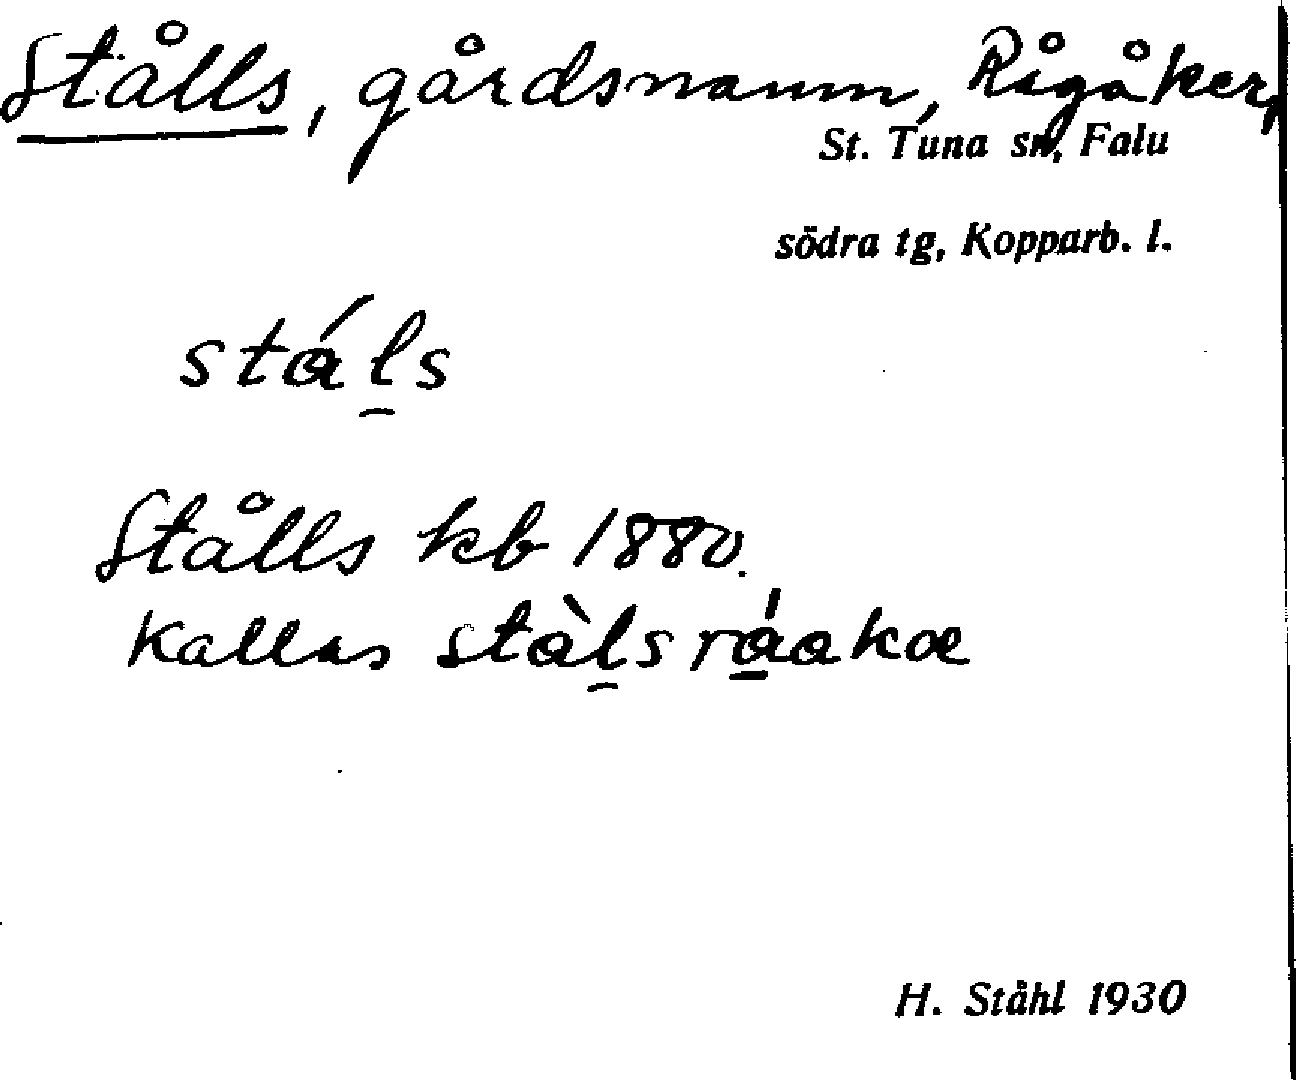 Stålls, gårdsnamn, Rågåker,
St. Tuna sn, Falu
södra tg, Kopparb. l.
stál̲s
Stålls kb 1880.
Kallas
H. Ståhl 1930